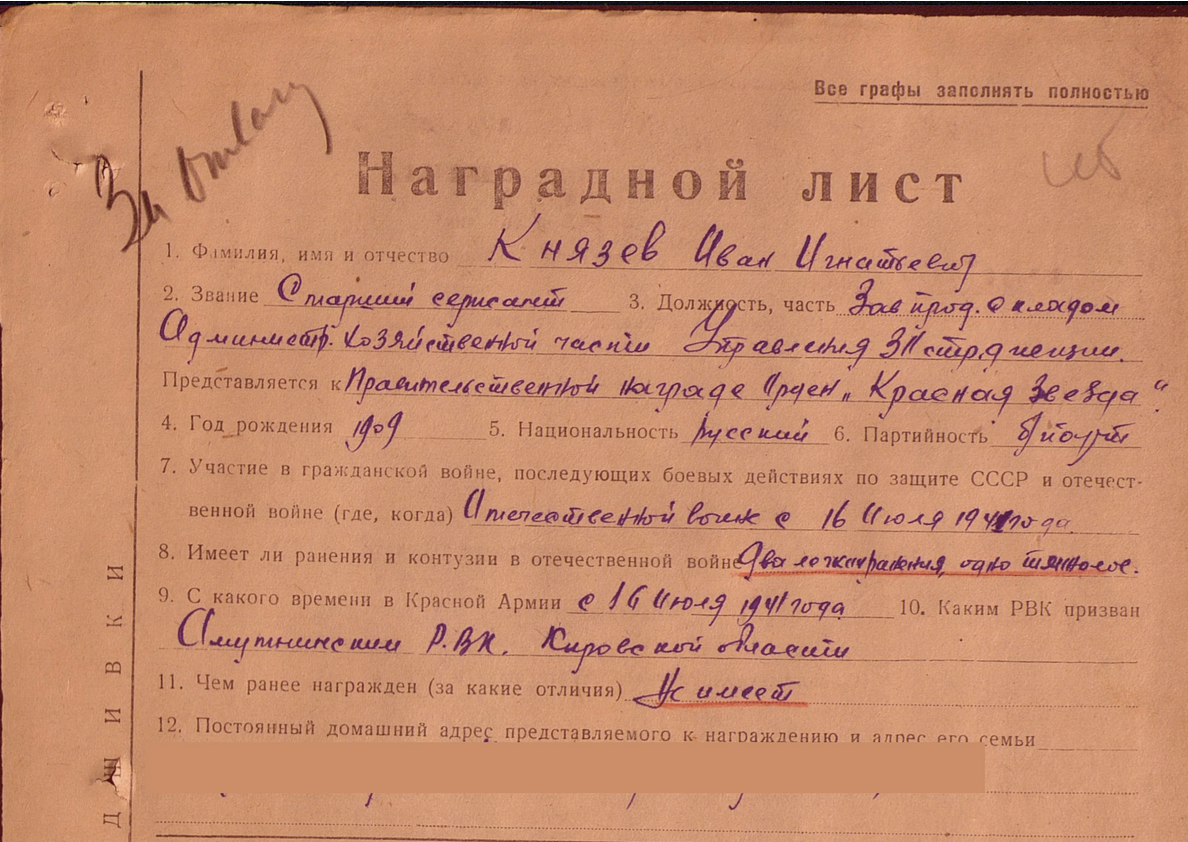 Все графы заполнять полностью
За отвагу
Наградной лист
1. Фамилия, имя и отчество Князев Иван Игнатьевич
2. Звание Старший сержант 3. Должность, часть Зав прод. складом
Администр. хозяйственной части Управления 311 стр. дивизии.
Представляется к Правительственной награде Орден „Красная Звезда“
4. Год рождения 1909 5. Национальность русский 6. Партийность
7. Участие в гражданской войне, последующих боевых действиях по защите СССР и отечест-
венной войне (где, когда) Отечественной войне с 16 Июля 1941 года
8. Имеет ли ранения и контузии в отечественной войне Два легких ранения, одно тяжолое.
9. С какого времени в Красной Армии с 16 Июля 1941 года 10. Каким РВК призван
Омутнинским Р.В.К. Кировской области
11. Чем ранее награжден (за какие отличия) Не имеет
12. Постоянный домашний адрес представляемого к награждению и адрес его семьи
ДШИВКИ